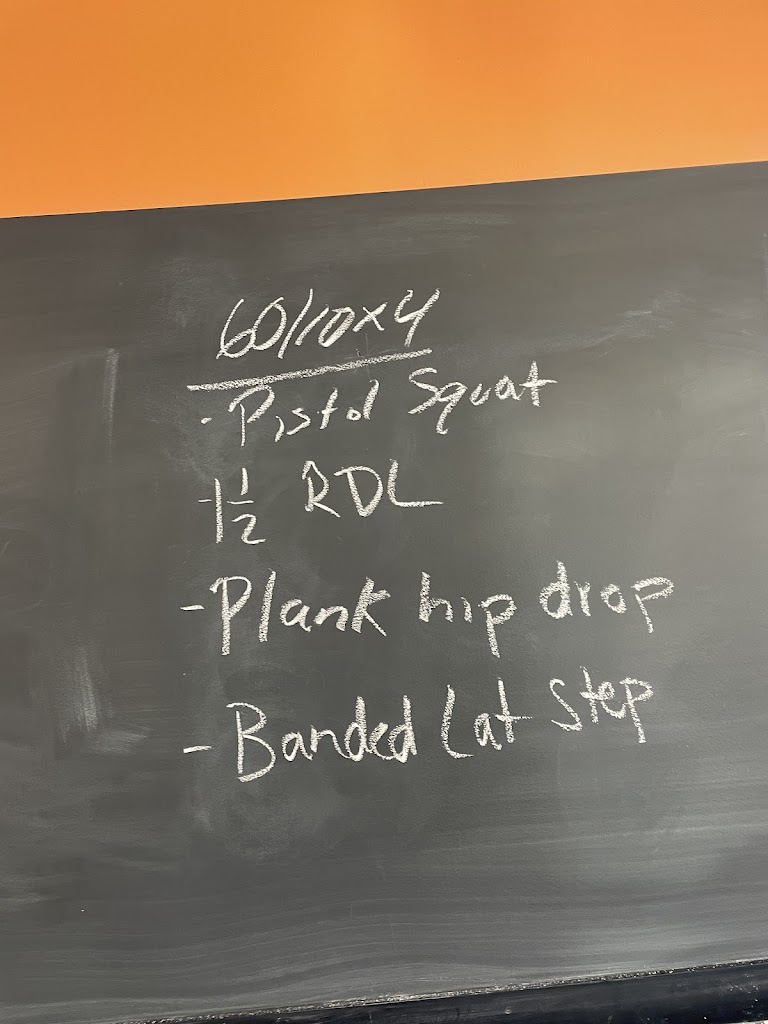 60/10x4
- Pistol Squat
- 1 1/2 RDL
- Plank hip drop
- Banded Lat Step